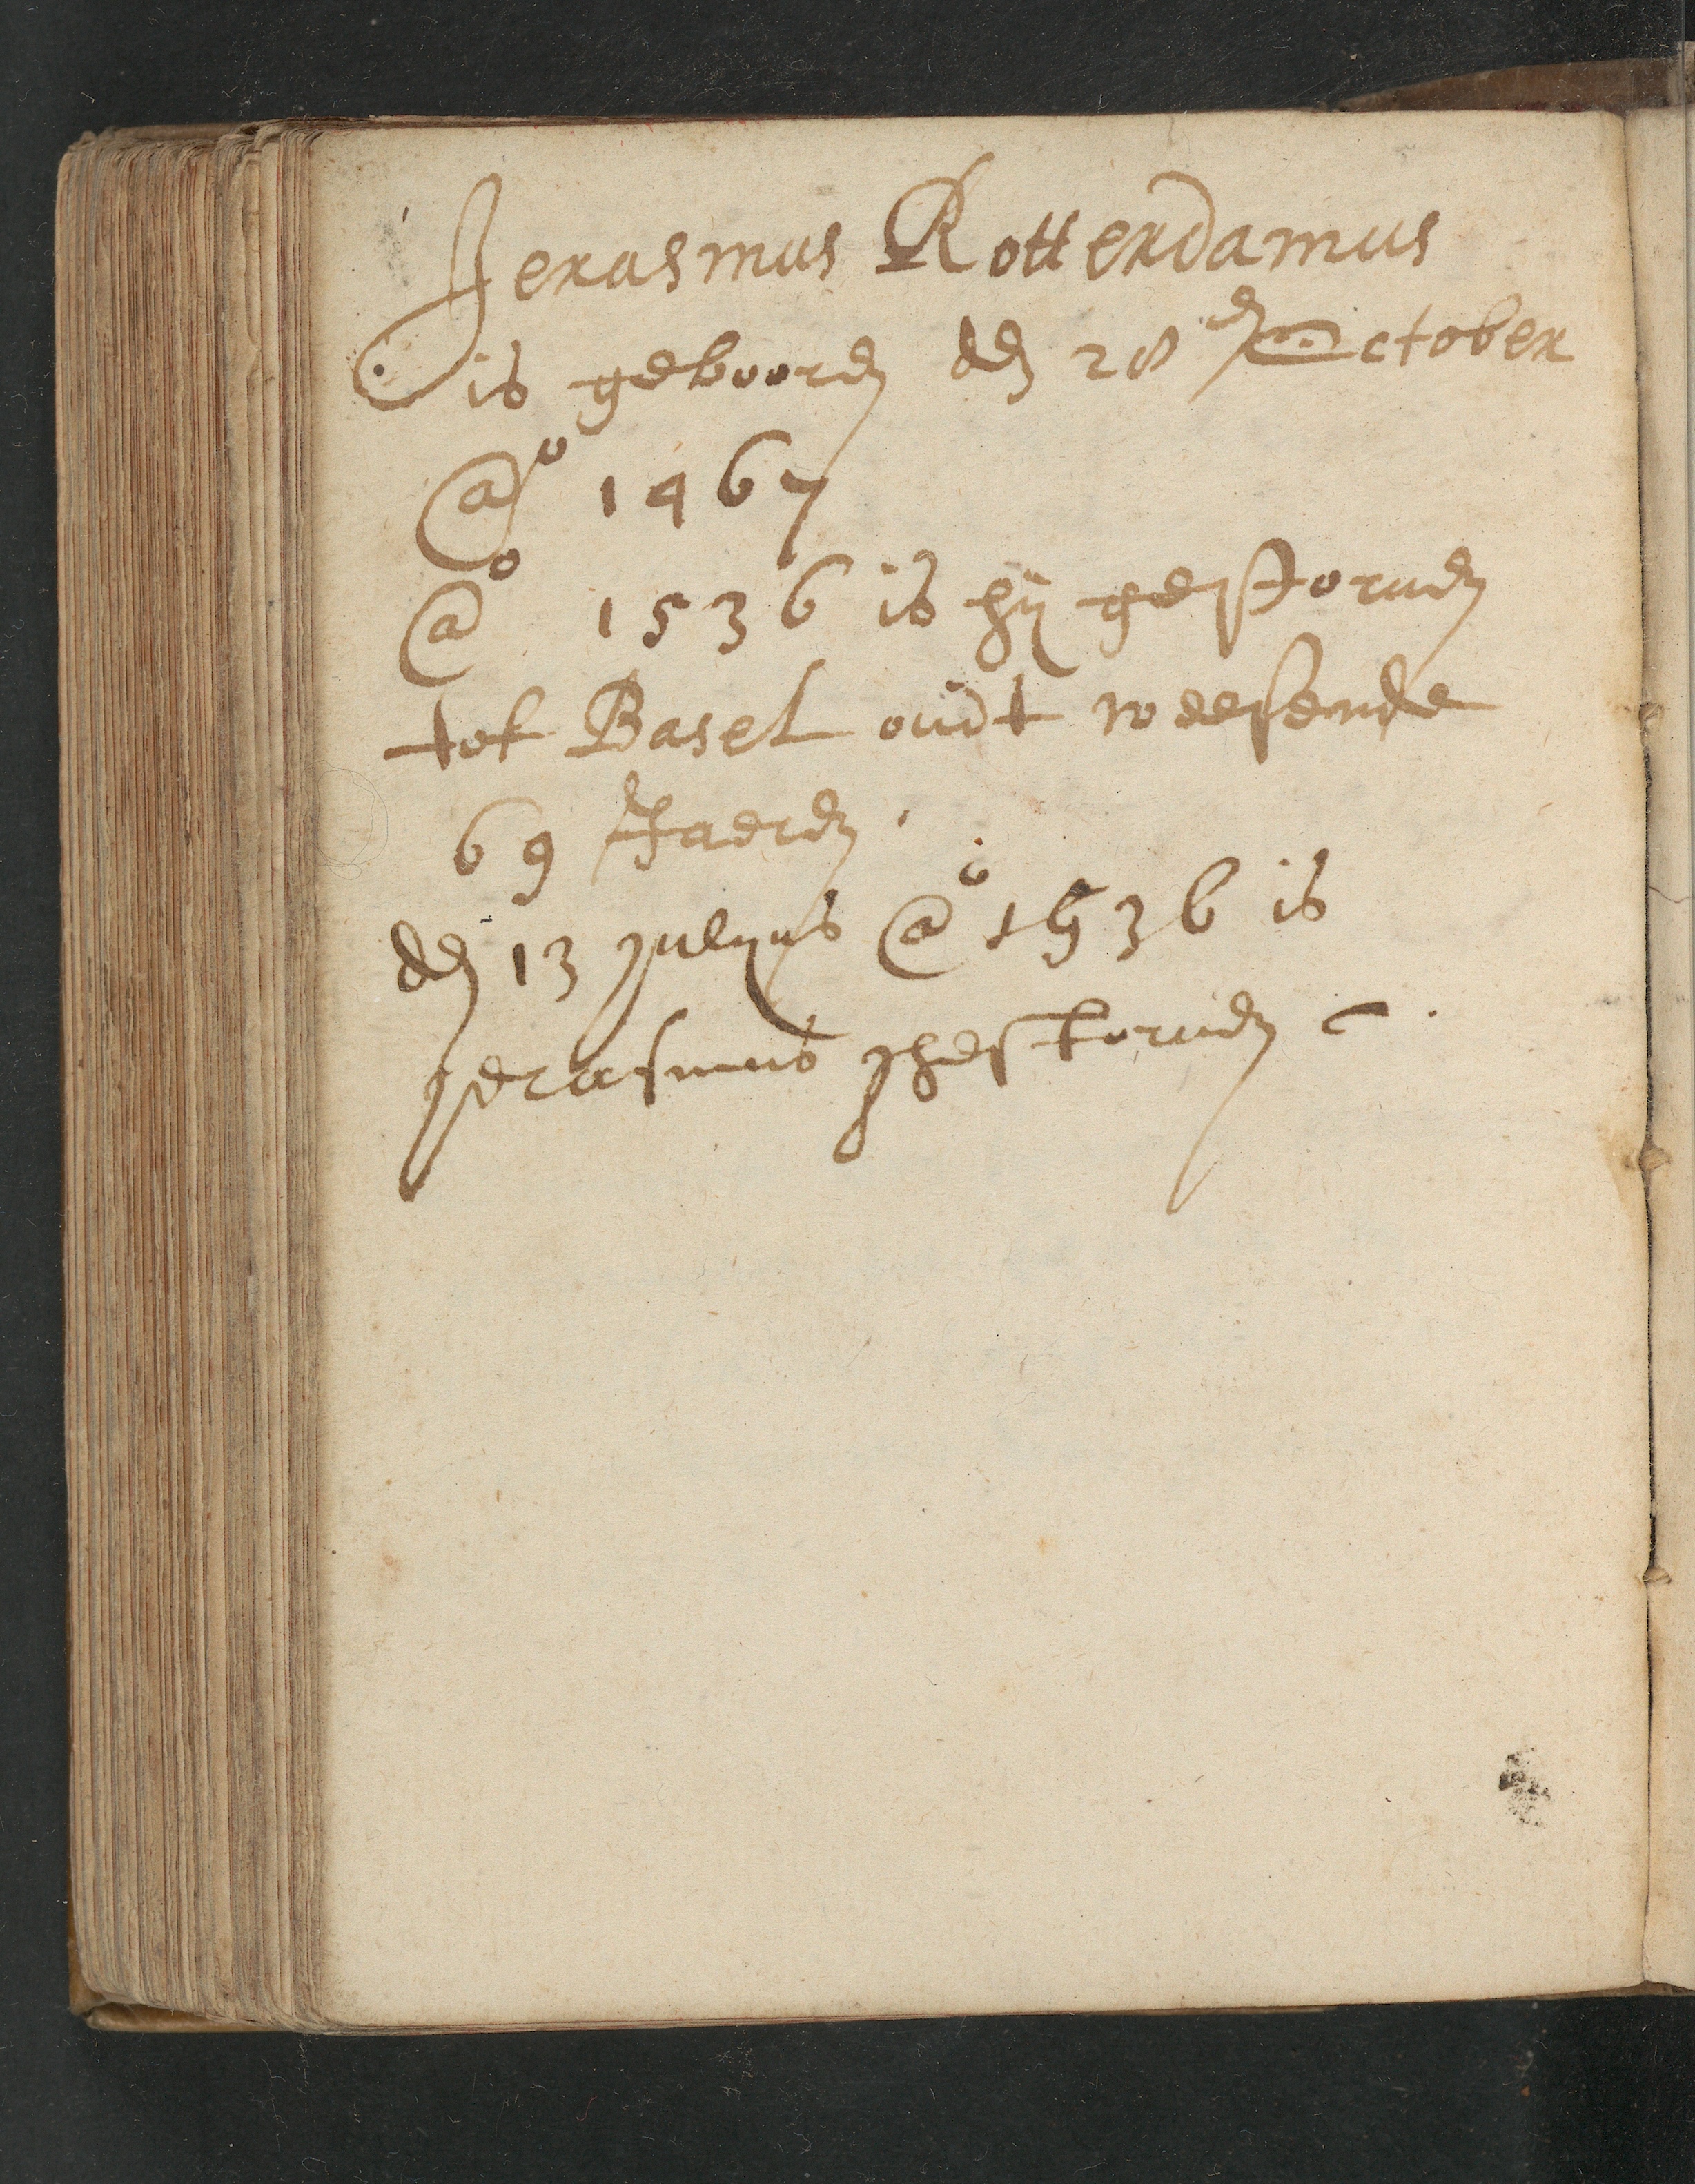 Jerasmus Rotterdamus
is gebooren den 28en October
@o 1467
@o 1536 is hij gestoruen
tot Basel oudt weesende
69 Jaeren.
den 13 julyus @o 1536 is
jerasmus ghestoruen